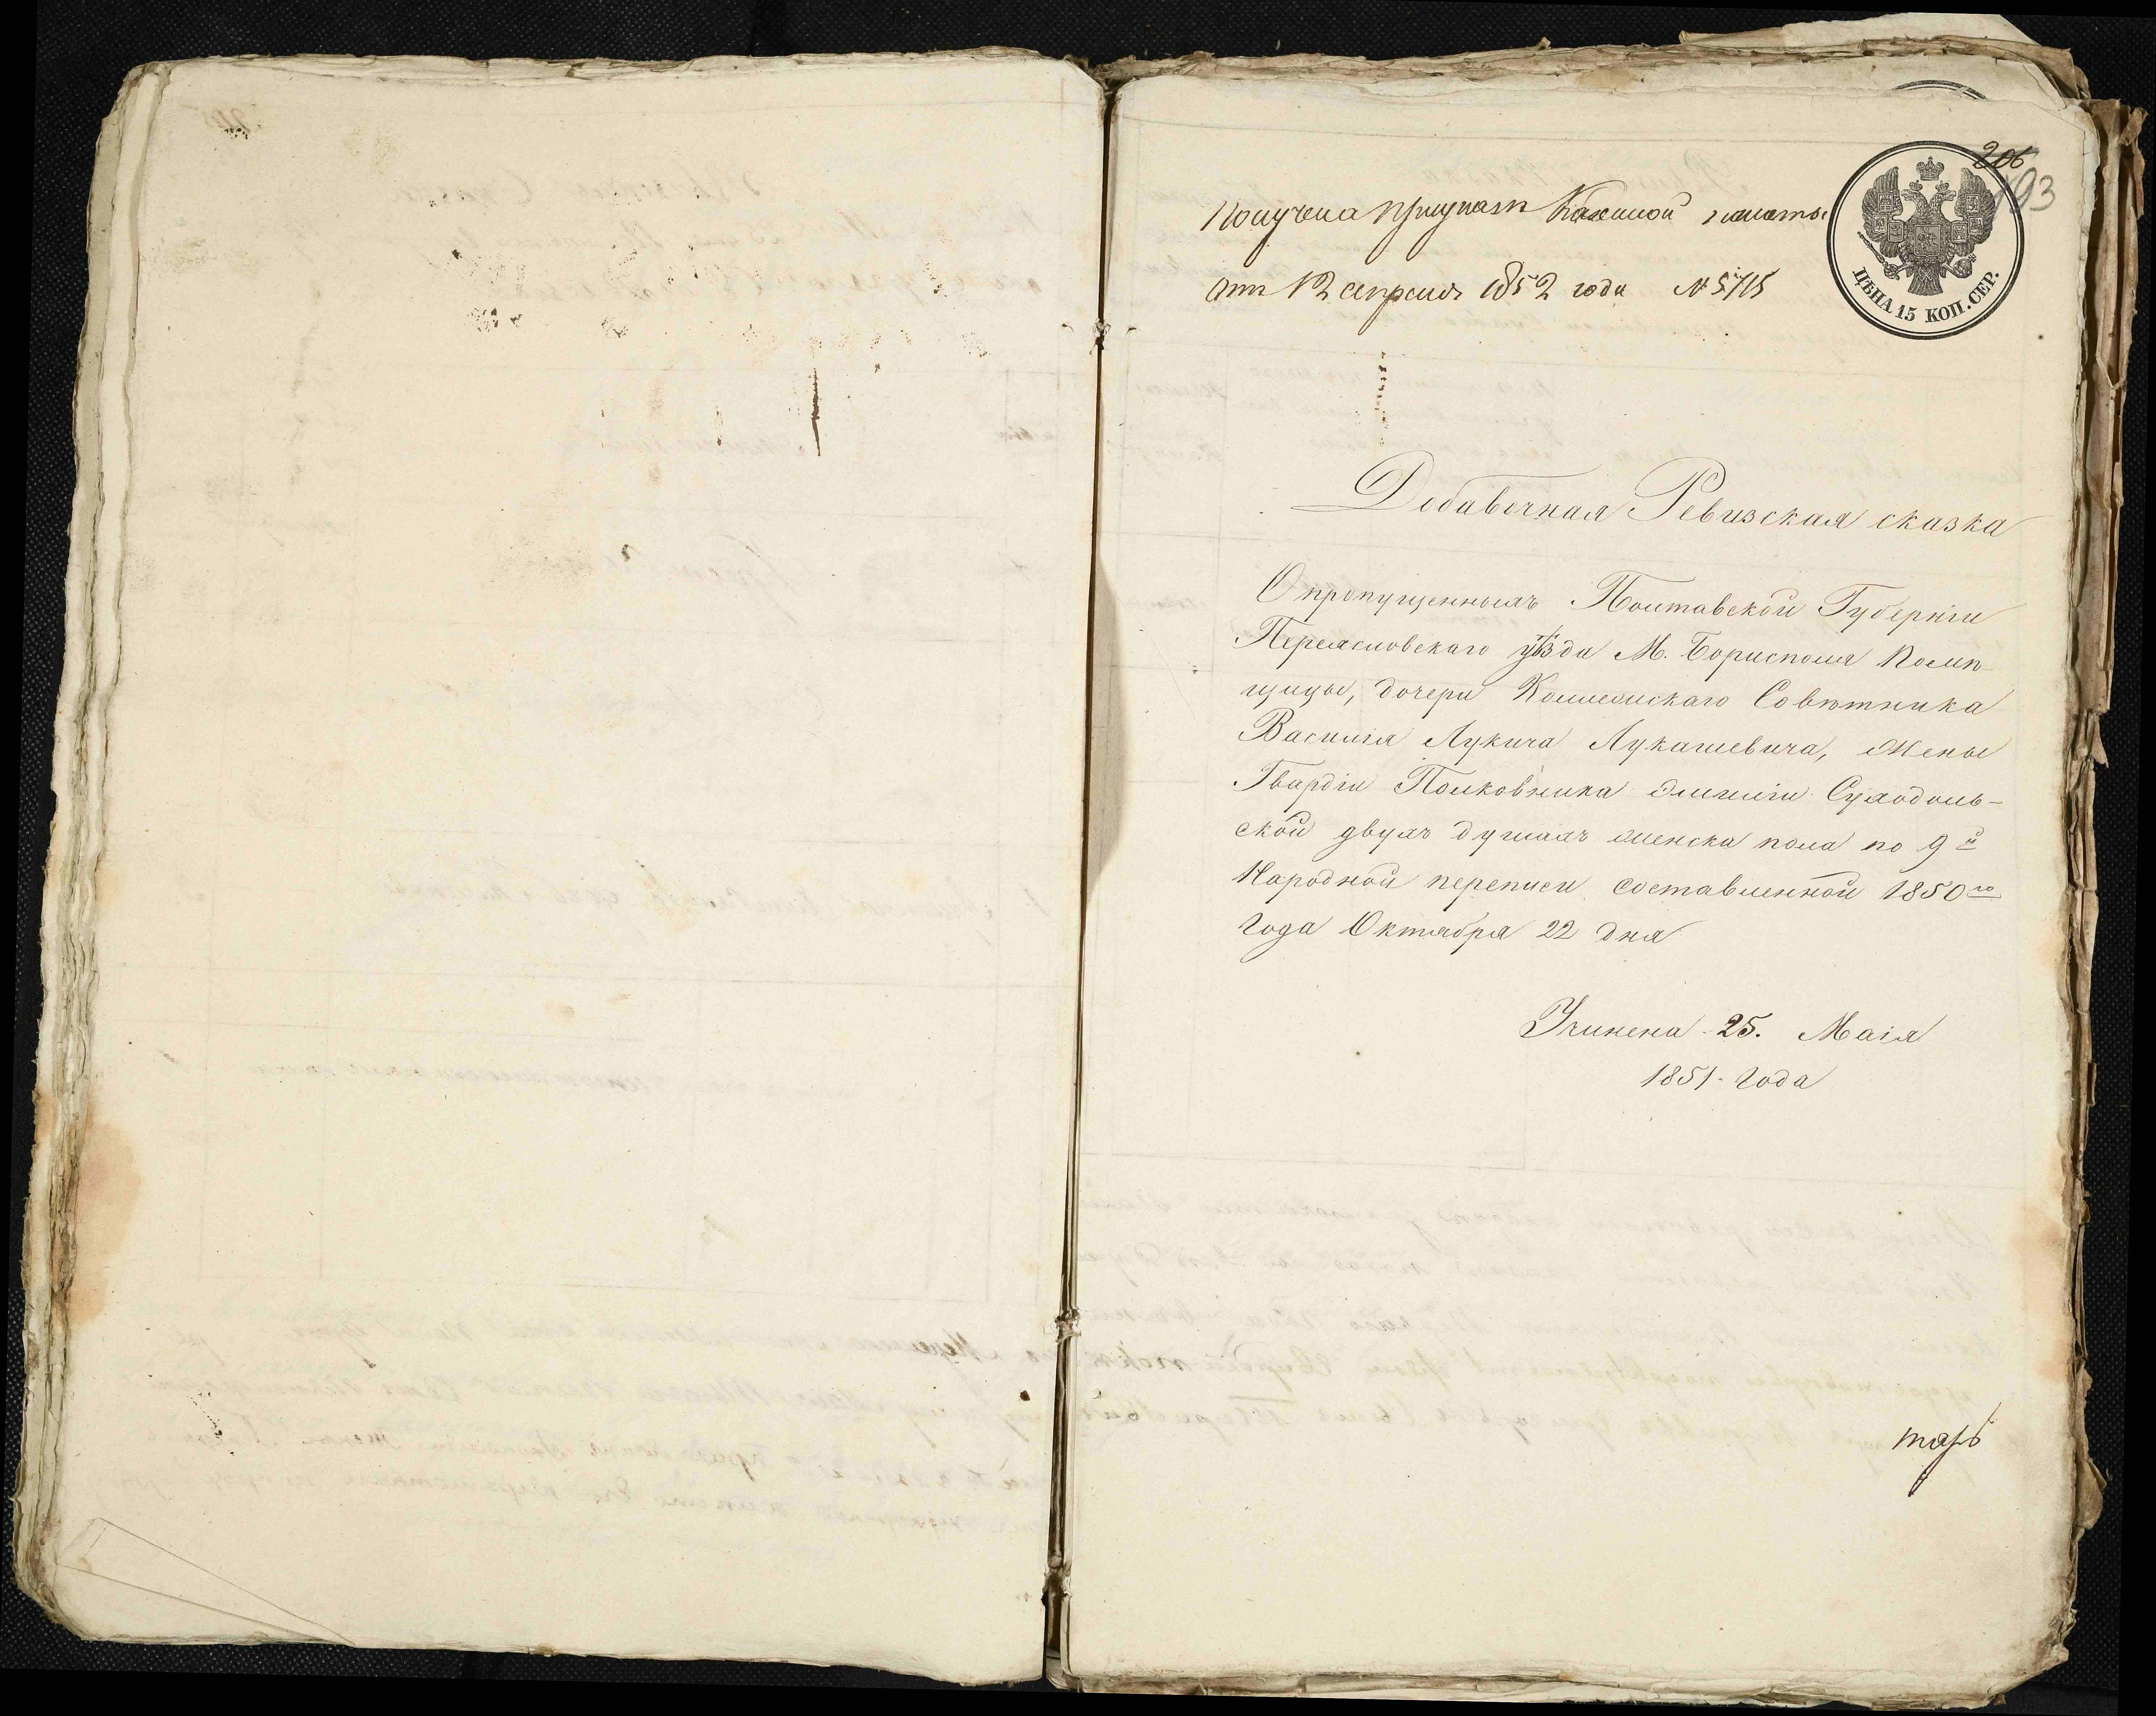 206
193
Получена при указе Казенной палаты
отъ 12 апреля 1852 года № 5715
ЦѢНА 15 КОП. СЕР.
Добавочная Ревизская сказка
О пропущенныхъ Полтавской Губерніи
Переяславскаго уѣзда М. Борисполя Помѣ-
щицы, дочери Коллежскаго Совѣтника
Василія Лукича Лукашевича, Жены
Гвардіи Полковника Эмиліи Суходоль-
ской двухъ душахъ женска пола по 9й
Народной переписи составленной 1850го
года Октября 22 дня
Учинена 25. Маія
1851 года